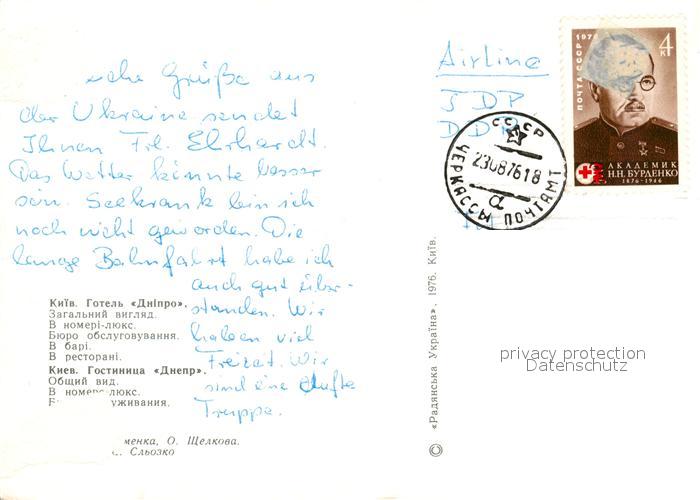 Grüße aus
der Ukraine sendet
Ihnen Frl. Ehrhardt.
Das Wetter könnte besser
sein. Seekrank bin ich
noch nicht geworden. Die
lange Bahnfahrt habe ich
auch gut über-
standen. Wir
haben viel
Freizeit. Wir
sind eine dufte
Truppe.
Київ. Готель «Дніпро».
Загальний вигляд.
В номері-люкс.
Бюро обслуговування.
В барі.
В ресторані.
Киев. Гостиница «Днепр».
Общий вид.
В номере-люкс.
уживания.
менка, О. Щелкова.
Сльозко
© «Радянська Україна», 1976. Київ.
Airline
DDR
СССР
23087618
ЧЕРКАССЫ ПОЧТАМТ
1976
4 к
ПОЧТА СССР
АКАДЕМИК
Н.Н. БУРДЕНКО
1876-1946
privacy protection
Datenschutz